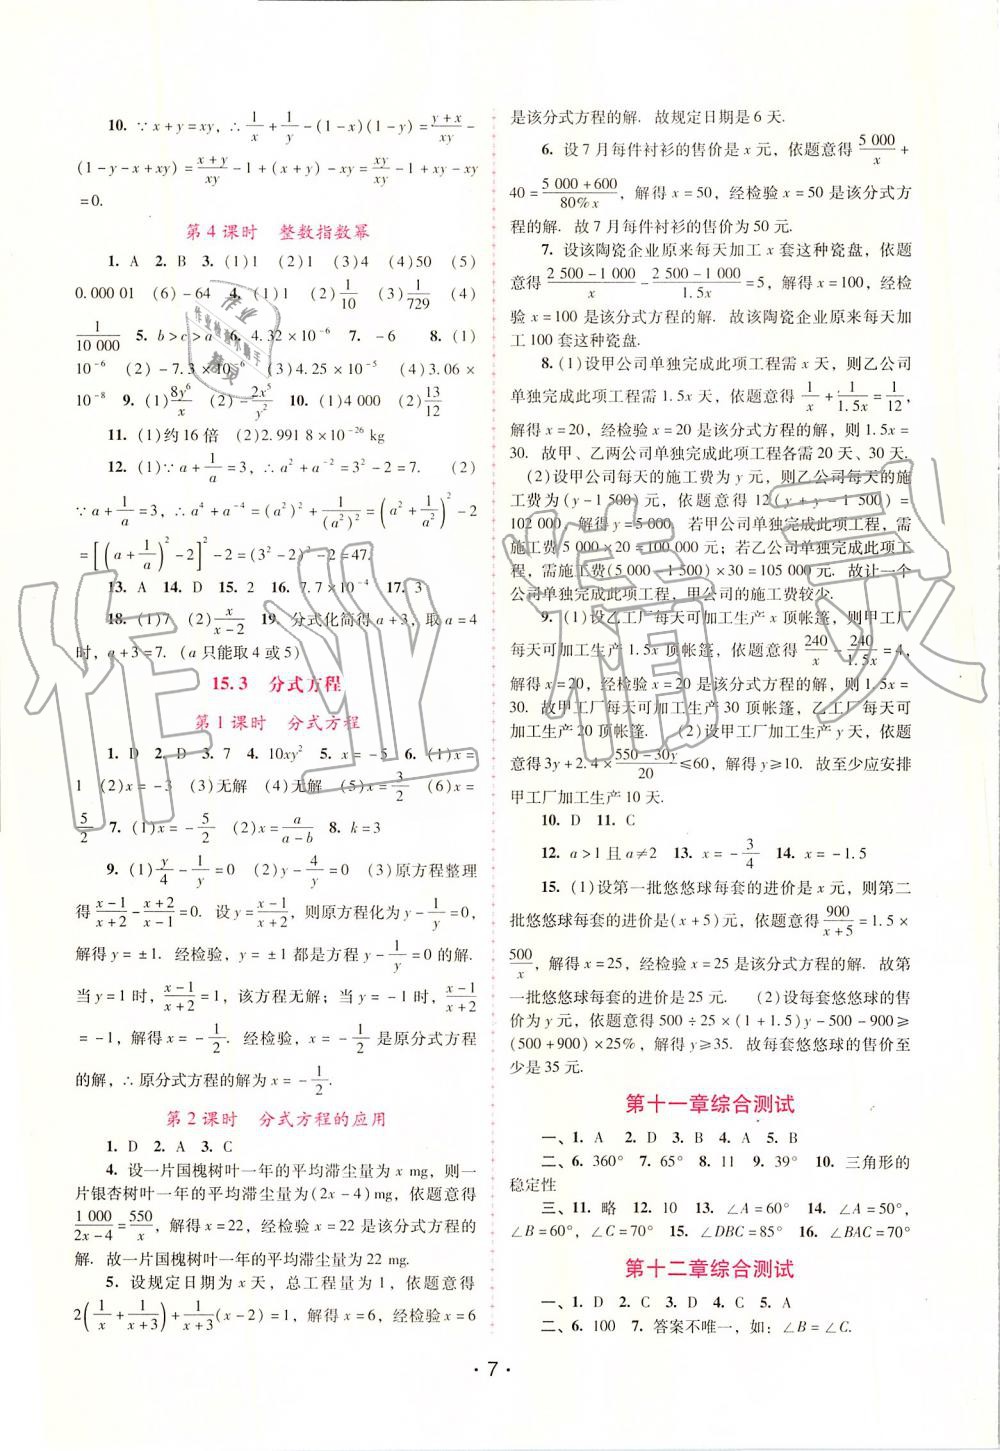 10. ∵x+y=xy,∴1/x+1/y-(1-x)(1-y)=(y+x)/xy-
(1-y-x+xy)=(x+y)/xy-1+(x+y)-xy=xy/xy-1+xy-xy
=0.
第4课时 整数指数幂
1. A 2. B 3. (1)1 (2)1 (3)4 (4)50 (5)
0.000 01 (6)-64 4. (1)1 (2)1/10 (3)1/729 (4)
1/10 000 5. b>c>a 6. 4.32×10⁻⁶ 7. -6 8. (1)
10⁻⁶ (2)-7.3×10⁶ (3)4.25×10⁻⁵ (4)3.06×
10⁻⁸ 9. (1)8y⁶/x (2)-2x⁵/y² 10. (1)4 000 (2)13/12
11. (1)约16倍 (2)2.991 8×10⁻²⁶ kg
12. (1)∵a+1/a=3,∴a²+a⁻²=3²-2=7. (2)
∵a+1/a=3,∴a⁴+a⁻⁴=(a²)²+1/(a²)²=(a²+1/a²)²-2
=[(a+1/a)²-2]²-2=(3²-2)²-2=47.
13. A 14. D 15. 2 16. 7.7×10⁻⁴ 17. 3
18. (1)7 (2)x/(x-2) 19. 分式化简得a+3,取a=4
时,a+3=7. (a只能取4或5)
15.3 分式方程
第1课时 分式方程
1. D 2. D 3. 7 4. 10xy² 5. x=-5 6. (1)x=
1 (2)x=-3 (3)无解 (4)无解 (5)x=3/2 (6)x=
5/2 7. (1)x=-5/2 (2)x=a/(a-b) 8. k=3
9. (1)y/4-1/y=0 (2)y-4/y=0 (3)原方程整理
得(x-1)/(x+2)-(x+2)/(x-1)=0. 设y=(x-1)/(x+2),则原方程化为y-1/y=0,
解得y=±1. 经检验,y=±1都是方程y-1/y=0的解.
当y=1时,(x-1)/(x+2)=1,该方程无解;当y=-1时,(x-1)/(x+2)
=-1,解得x=-1/2. 经检验,x=-1/2是原分式方程
的解,∴原分式方程的解为x=-1/2.
第2课时 分式方程的应用
1. D 2. A 3. C
4. 设一片国槐树叶一年的平均滞尘量为x mg,则一
片银杏树叶一年的平均滞尘量为(2x-4)mg,依题意得
1 000/(2x-4)=550/x,解得x=22,经检验x=22是该分式方程的
解. 故一片国槐树叶一年的平均滞尘量为22 mg.
5. 设规定日期为x天,总工程量为1,依题意得
2(1/x+1/(x+3))+1/(x+3)(x-2)=1,解得x=6,经检验x=6
是该分式方程的解. 故规定日期是6天.
6. 设7月每件衬衫的售价是x元,依题意得5 000/x+
40=(5 000+600)/80%x,解得x=50,经检验x=50是该分式方
程的解. 故7月每件衬衫的售价为50元.
7. 设该陶瓷企业原来每天加工x套这种瓷盘,依题
意得(2 500-1 000)/x-(2 500-1 000)/1.5x=5,解得x=100,经检
验x=100是该分式方程的解. 故该陶瓷企业原来每天加
工100套这种瓷盘.
8. (1)设甲公司单独完成此项工程需x天,则乙公司
单独完成此项工程需1.5x天,依题意得1/x+1/1.5x=1/12,
解得x=20,经检验x=20是该分式方程的解,则1.5x=
30. 故甲、乙两公司单独完成此项工程各需20天、30天.
(2)设甲公司每天的施工费为y元,则乙公司每天的施
工费为(y-1 500)元,依题意得12(y+y-1 500)=
102 000,解得y=5 000. 若甲公司单独完成此项工程,需
施工费5 000×20=100 000元;若乙公司单独完成此项工
程,需施工费(5 000-1 500)×30=105 000元. 故让一个
公司单独完成此项工程,甲公司的施工费较少.
9. (1)设乙工厂每天可加工生产x顶帐篷,则甲工厂
每天可加工生产1.5x顶帐篷,依题意得240/x-240/1.5x=4,
解得x=20,经检验x=20是该分式方程的解,则1.5x=
30. 故甲工厂每天可加工生产30顶帐篷,乙工厂每天可
加工生产20顶帐篷. (2)设甲工厂加工生产y天,依题
意得3y+2.4×(550-30y)/20≤60,解得y≥10. 故至少应安排
甲工厂加工生产10天.
10. D 11. C
12. a>1且a≠2 13. x=-3/4 14. x=-1.5
15. (1)设第一批悠悠球每套的进价是x元,则第二
批悠悠球每套的进价是(x+5)元,依题意得900/(x+5)=1.5×
500/x,解得x=25,经检验x=25是该分式方程的解. 故第
一批悠悠球每套的进价是25元. (2)设每套悠悠球的售
价为y元,依题意得500÷25×(1+1.5)y-500-900≥
(500+900)×25%,解得y≥35. 故每套悠悠球的售价至
少是35元.
第十一章综合测试
一、1. A 2. D 3. B 4. A 5. B
二、6. 360° 7. 65° 8. 11 9. 39° 10. 三角形的
稳定性
三、11. 略 12. 10 13. ∠A=60° 14. ∠A=50°,
∠B=60°,∠C=70° 15. ∠DBC=85° 16. ∠BAC=70°
第十二章综合测试
一、1. D 2. C 3. D 4. C 5. A
二、6. 100 7. 答案不唯一,如:∠B=∠C.
·7·
作业
作业检查小助手
精灵
作业精灵